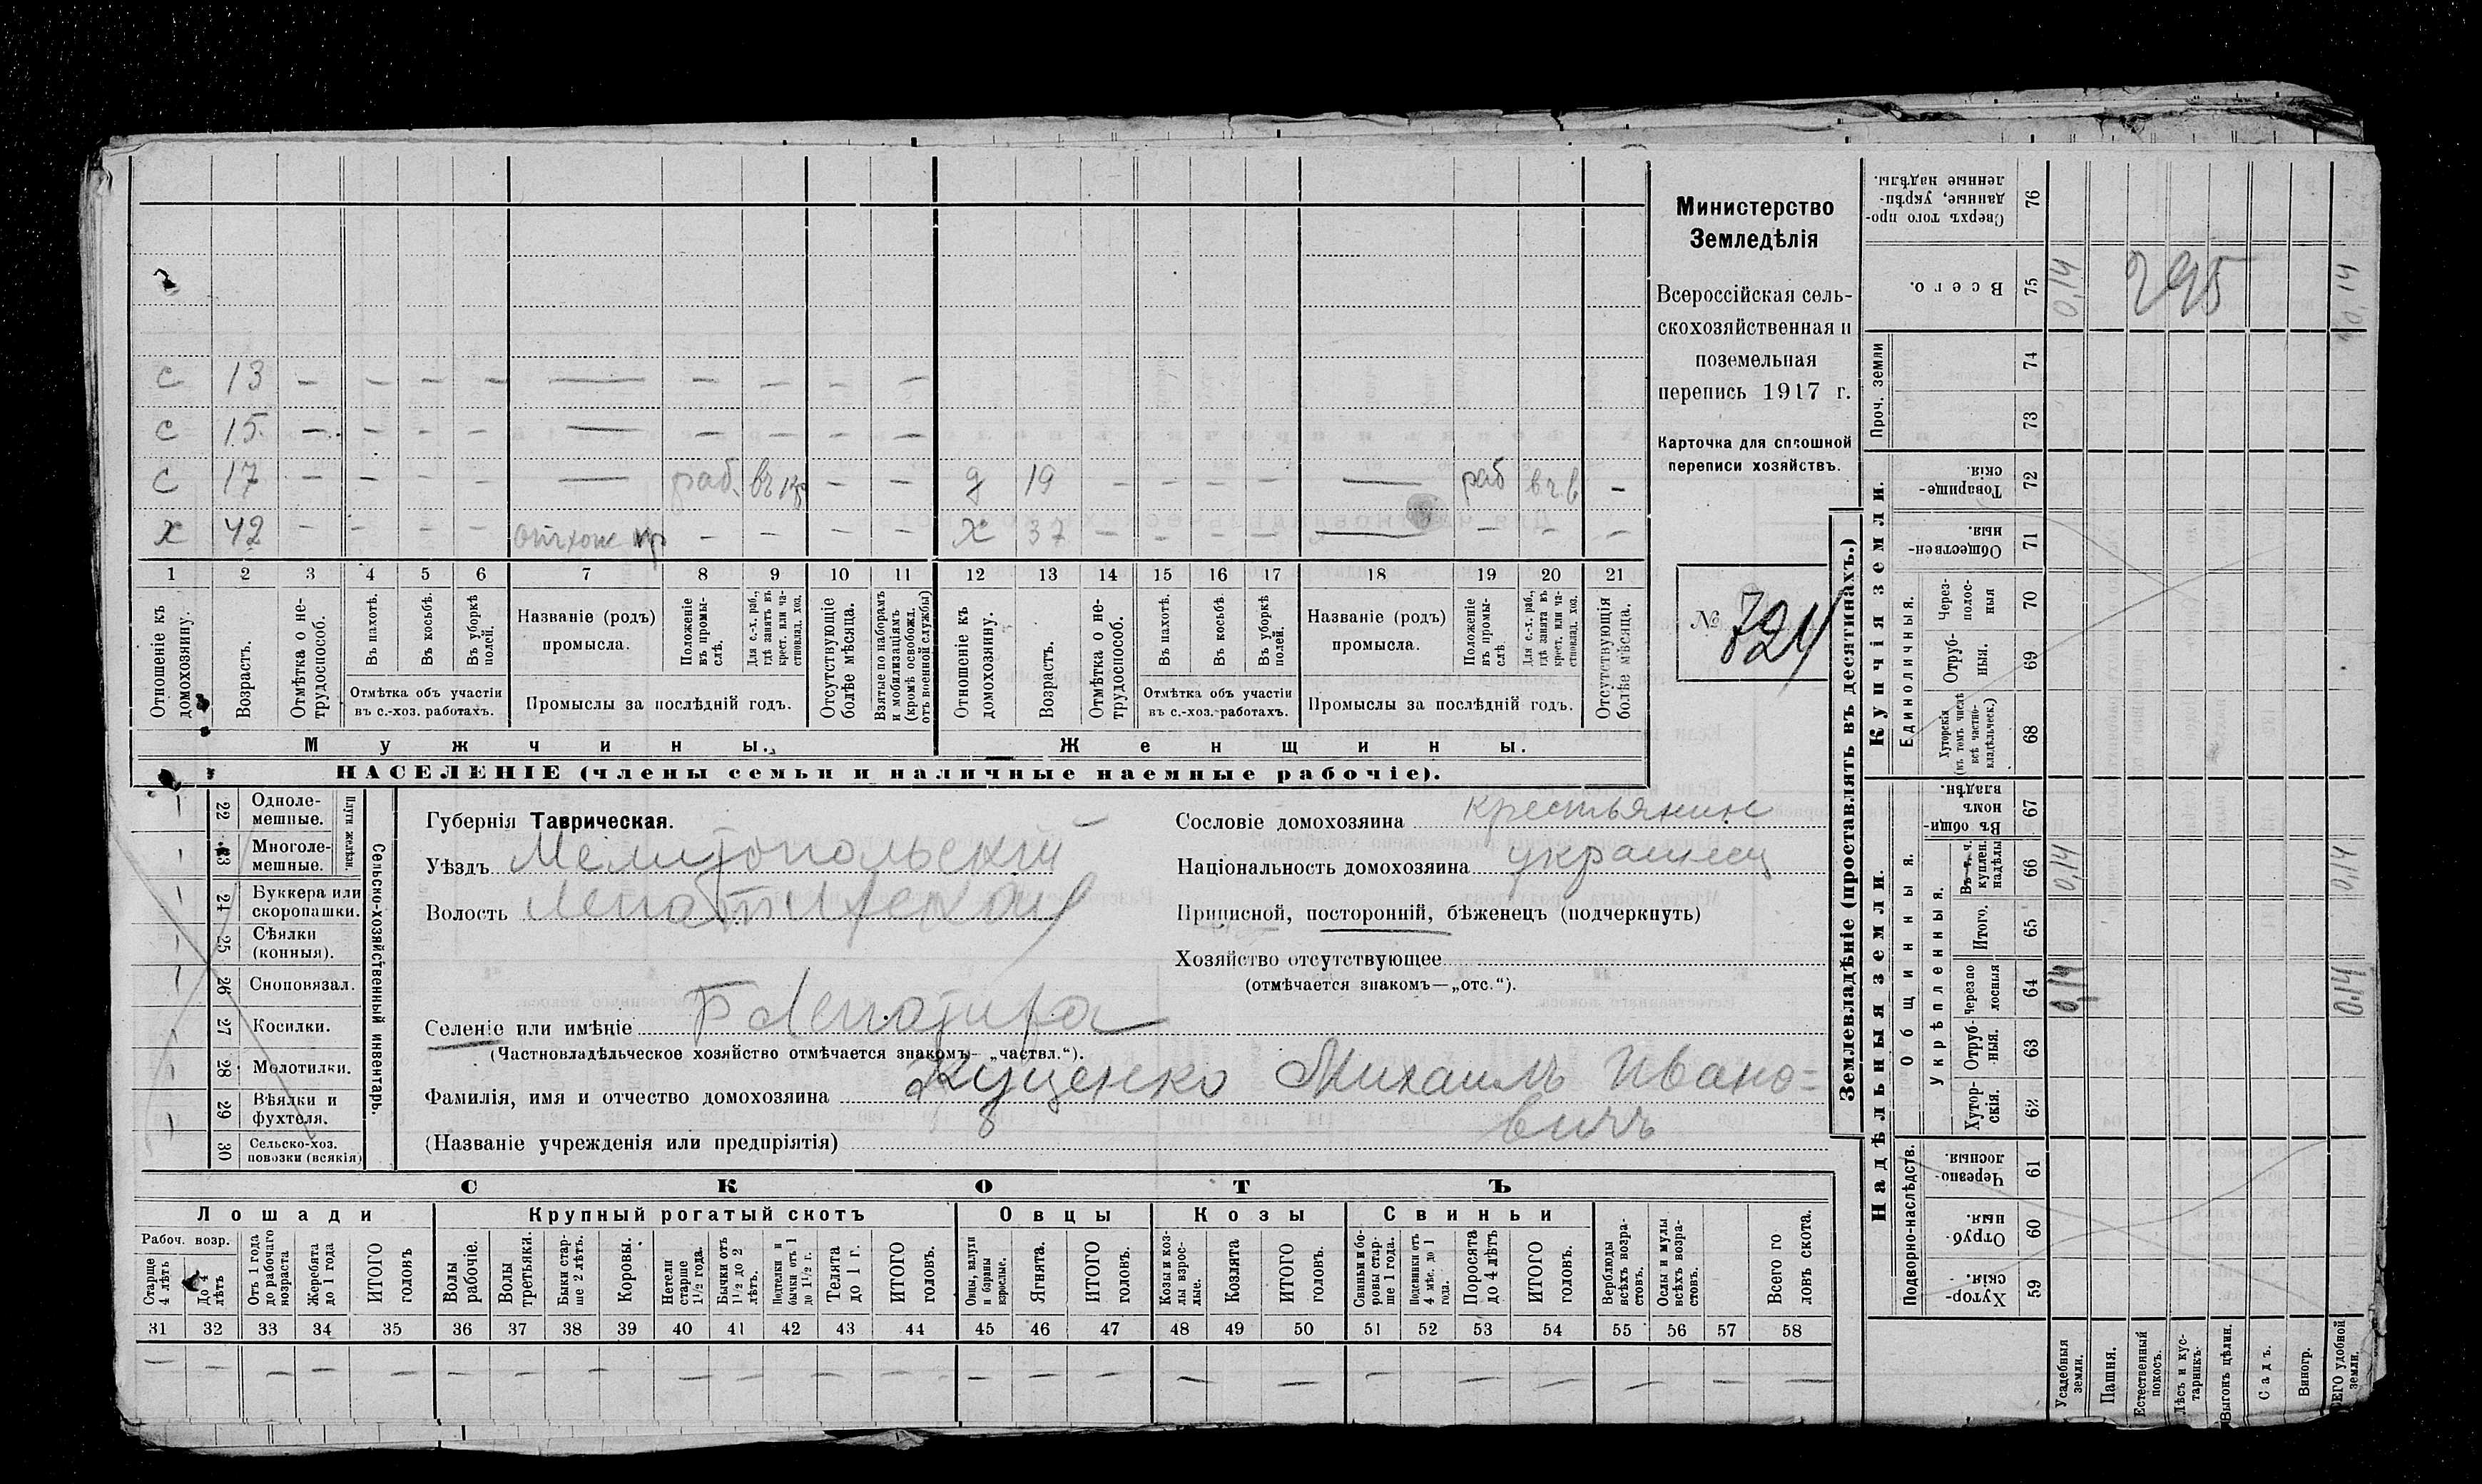 с 13 — — — — — — — — —
с 15 — — — — — — — — —
с 17 — — — — — раб. — —
д 19 — — — — — раб —
х 42 — — — — — — — —
х 37 — — — — — — — —
1 2 3 4 5 6 7 8 9 10 11 12 13 14 15 16 17 18 19 20 21
Отношеніе къ домохозяину.
Возрастъ.
Отмѣтка о нетрудоспособ.
Въ пахотѣ.
Въ косьбѣ.
Въ уборкѣ полей.
Отмѣтка объ участіи
въ с.-хоз. работахъ.
Названіе (родъ)
промысла.
Положеніе въ промыслѣ.
Для с.-х. раб., гдѣ занятъ въ крест. или частновлад. хоз.
Промыслы за послѣдній годъ.
Отсутствующіе болѣе мѣсяца.
Взятые по наборамъ и мобилизаціямъ (кромѣ освобожд. отъ военной службы)
Отношеніе къ домохозяину.
Возрастъ.
Отмѣтка о нетрудоспособ.
Въ пахотѣ.
Въ косьбѣ.
Въ уборкѣ полей.
Отмѣтка объ участіи
въ с.-хоз. работахъ.
Названіе (родъ)
промысла.
Положеніе въ промыслѣ
Для с.-х. раб., гдѣ занятъ въ крест. или частновлад. хоз.
Промыслы за послѣдній годъ.
Отсутствующія болѣе мѣсяца.
Мужчины.
Женщины.
НАСЕЛЕНІЕ (члены семьи и наличные наемные рабочіе).
Министерство
Земледѣлія
Всероссійская сель-
скохозяйственная и
поземельная
перепись 1917 г.
Карточка для сплошной
переписи хозяйствъ.
№ 724
22 Однолемешные.
23 Многолемешные.
Плуги желѣзн.
24 Буккера или скоропашки.
25 Сѣялки (конныя).
26 Сноповязал.
27 Косилки.
28 Молотилки.
29 Вѣялки и фухтеля.
30 Сельско-хоз. повозки (всякія)
Сельско-хозяйственный инвентарь.
Губернія Таврическая.
Уѣздъ Мелитопольскій
Волость
Селеніе или имѣніе Б Лепатиха
(Частновладѣльческое хозяйство отмѣчается знакомъ— „частвл.“).
Фамилія, имя и отчество домохозяина Куценко Михаилъ Ивано=
вичъ
(Названіе учрежденія или предпріятія)
Сословіе домохозяина крестьянин
Національность домохозяина украинец
Приписной, посторонній, бѣженецъ (подчеркнуть)
Хозяйство отсутствующее
(отмѣчается знакомъ—„отс.“).
СКОТЪ
Лошади
Крупный рогатый скотъ
Овцы
Козы
Свиньи
Рабоч. возр.
Старше 4 лѣтъ
До 4 лѣтъ
Отъ 1 года до рабочаго возраста
Жеребята до 1 года
ИТОГО головъ
Волы рабочіе.
Волы третьяки.
Быки старше 2 лѣтъ.
Коровы.
Нетели старше 1½ года.
Бычки отъ 1½ до 2 лѣтъ.
Подтелки и бычки отъ 1 до 1½ г.
Телята до 1 г.
ИТОГО головъ.
Овцы, валухи и бараны взрослые.
Ягнята.
ИТОГО головъ.
Козы и козлы взрослые.
Козлята
ИТОГО головъ.
Свиньи и боровы старше 1 года.
Подсвинки отъ 4 мѣс. до 1 года.
Поросята до 4 лѣтъ
ИТОГО головъ.
Верблюды всѣхъ возрастовъ.
Ослы и мулы всѣхъ возрастовъ.
Всего головъ скота.
31 32 33 34 35 36 37 38 39 40 41 42 43 44 45 46 47 48 49 50 51 52 53 54 55 56 57 58
Землевладѣніе (проставлять въ десятинахъ.)
Сверхъ того проданные, укрѣпленные надѣлы. 76
Всего. 75 0,14 295 0,14
Проч. земли 74
73
Купчія земли.
Товарищескія. 72
Общественныя. 71
Единоличныя.
Черезполосныя 70
Отрубныя. 69
Хуторскія (въ томъ числѣ всѣ частновладѣльческ.) 68
Надѣльныя земли.
Общинныя.
Въ общинномъ владѣн. 67
Въ т. ч. куплен. надѣлы 66 0,14 0,14
Укрѣпленныя.
Итого. 65
Черезполосныя 64 0,14 0.14
Отрубныя. 63
Хуторскія. 62
Подворно-наслѣдств.
Черезполосныя. 61
Отрубныя. 60
Хуторскія. 59
Усадебныя земли.
Пашня.
Естественный покосъ.
Лѣсъ и кустарникъ.
Выгонъ цѣлин.
Садъ.
Виногр.
ЕГО удобной земли.